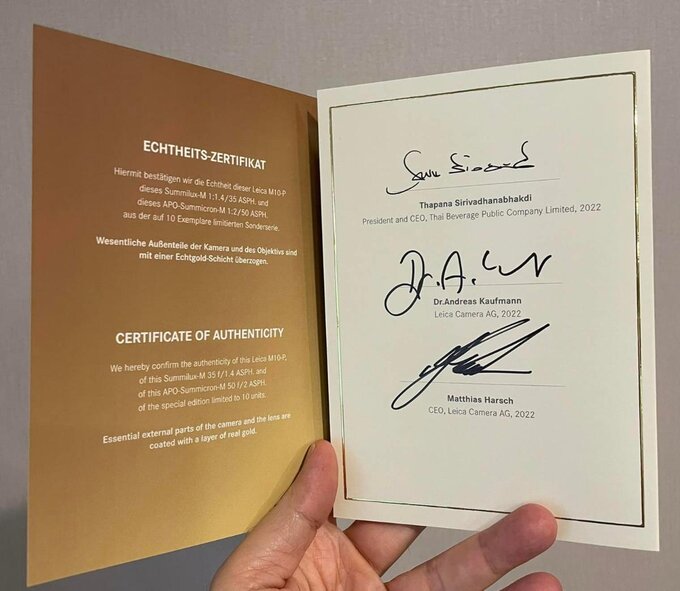 ECHTHEITS-ZERTIFIKAT
Hiermit bestätigen wir die Echtheit dieser Leica M10-P
dieses Summilux-M 1:1.4/35 ASPH. und
dieses APO-Summicron-M 1:2/50 ASPH.
aus der auf 10 Exemplare limitierten Sonderserie.
Wesentliche Außenteile der Kamera und des Objektivs sind
mit einer Echtgold-Schicht überzogen.
CERTIFICATE OF AUTHENTICITY
We hereby confirm the authenticity of this Leica M10-P,
of this Summilux-M 35 f/1.4 ASPH. and
of this APO-Summicron-M 50 f/2 ASPH.
of the special edition limited to 10 units.
Essential external parts of the camera and the lens are
coated with a layer of real gold.
Thapana Sirivadhanabhakdi
President and CEO, Thai Beverage Public Company Limited, 2022
Dr. A.
Dr.Andreas Kaufmann
Leica Camera AG, 2022
Matthias Harsch
CEO, Leica Camera AG, 2022